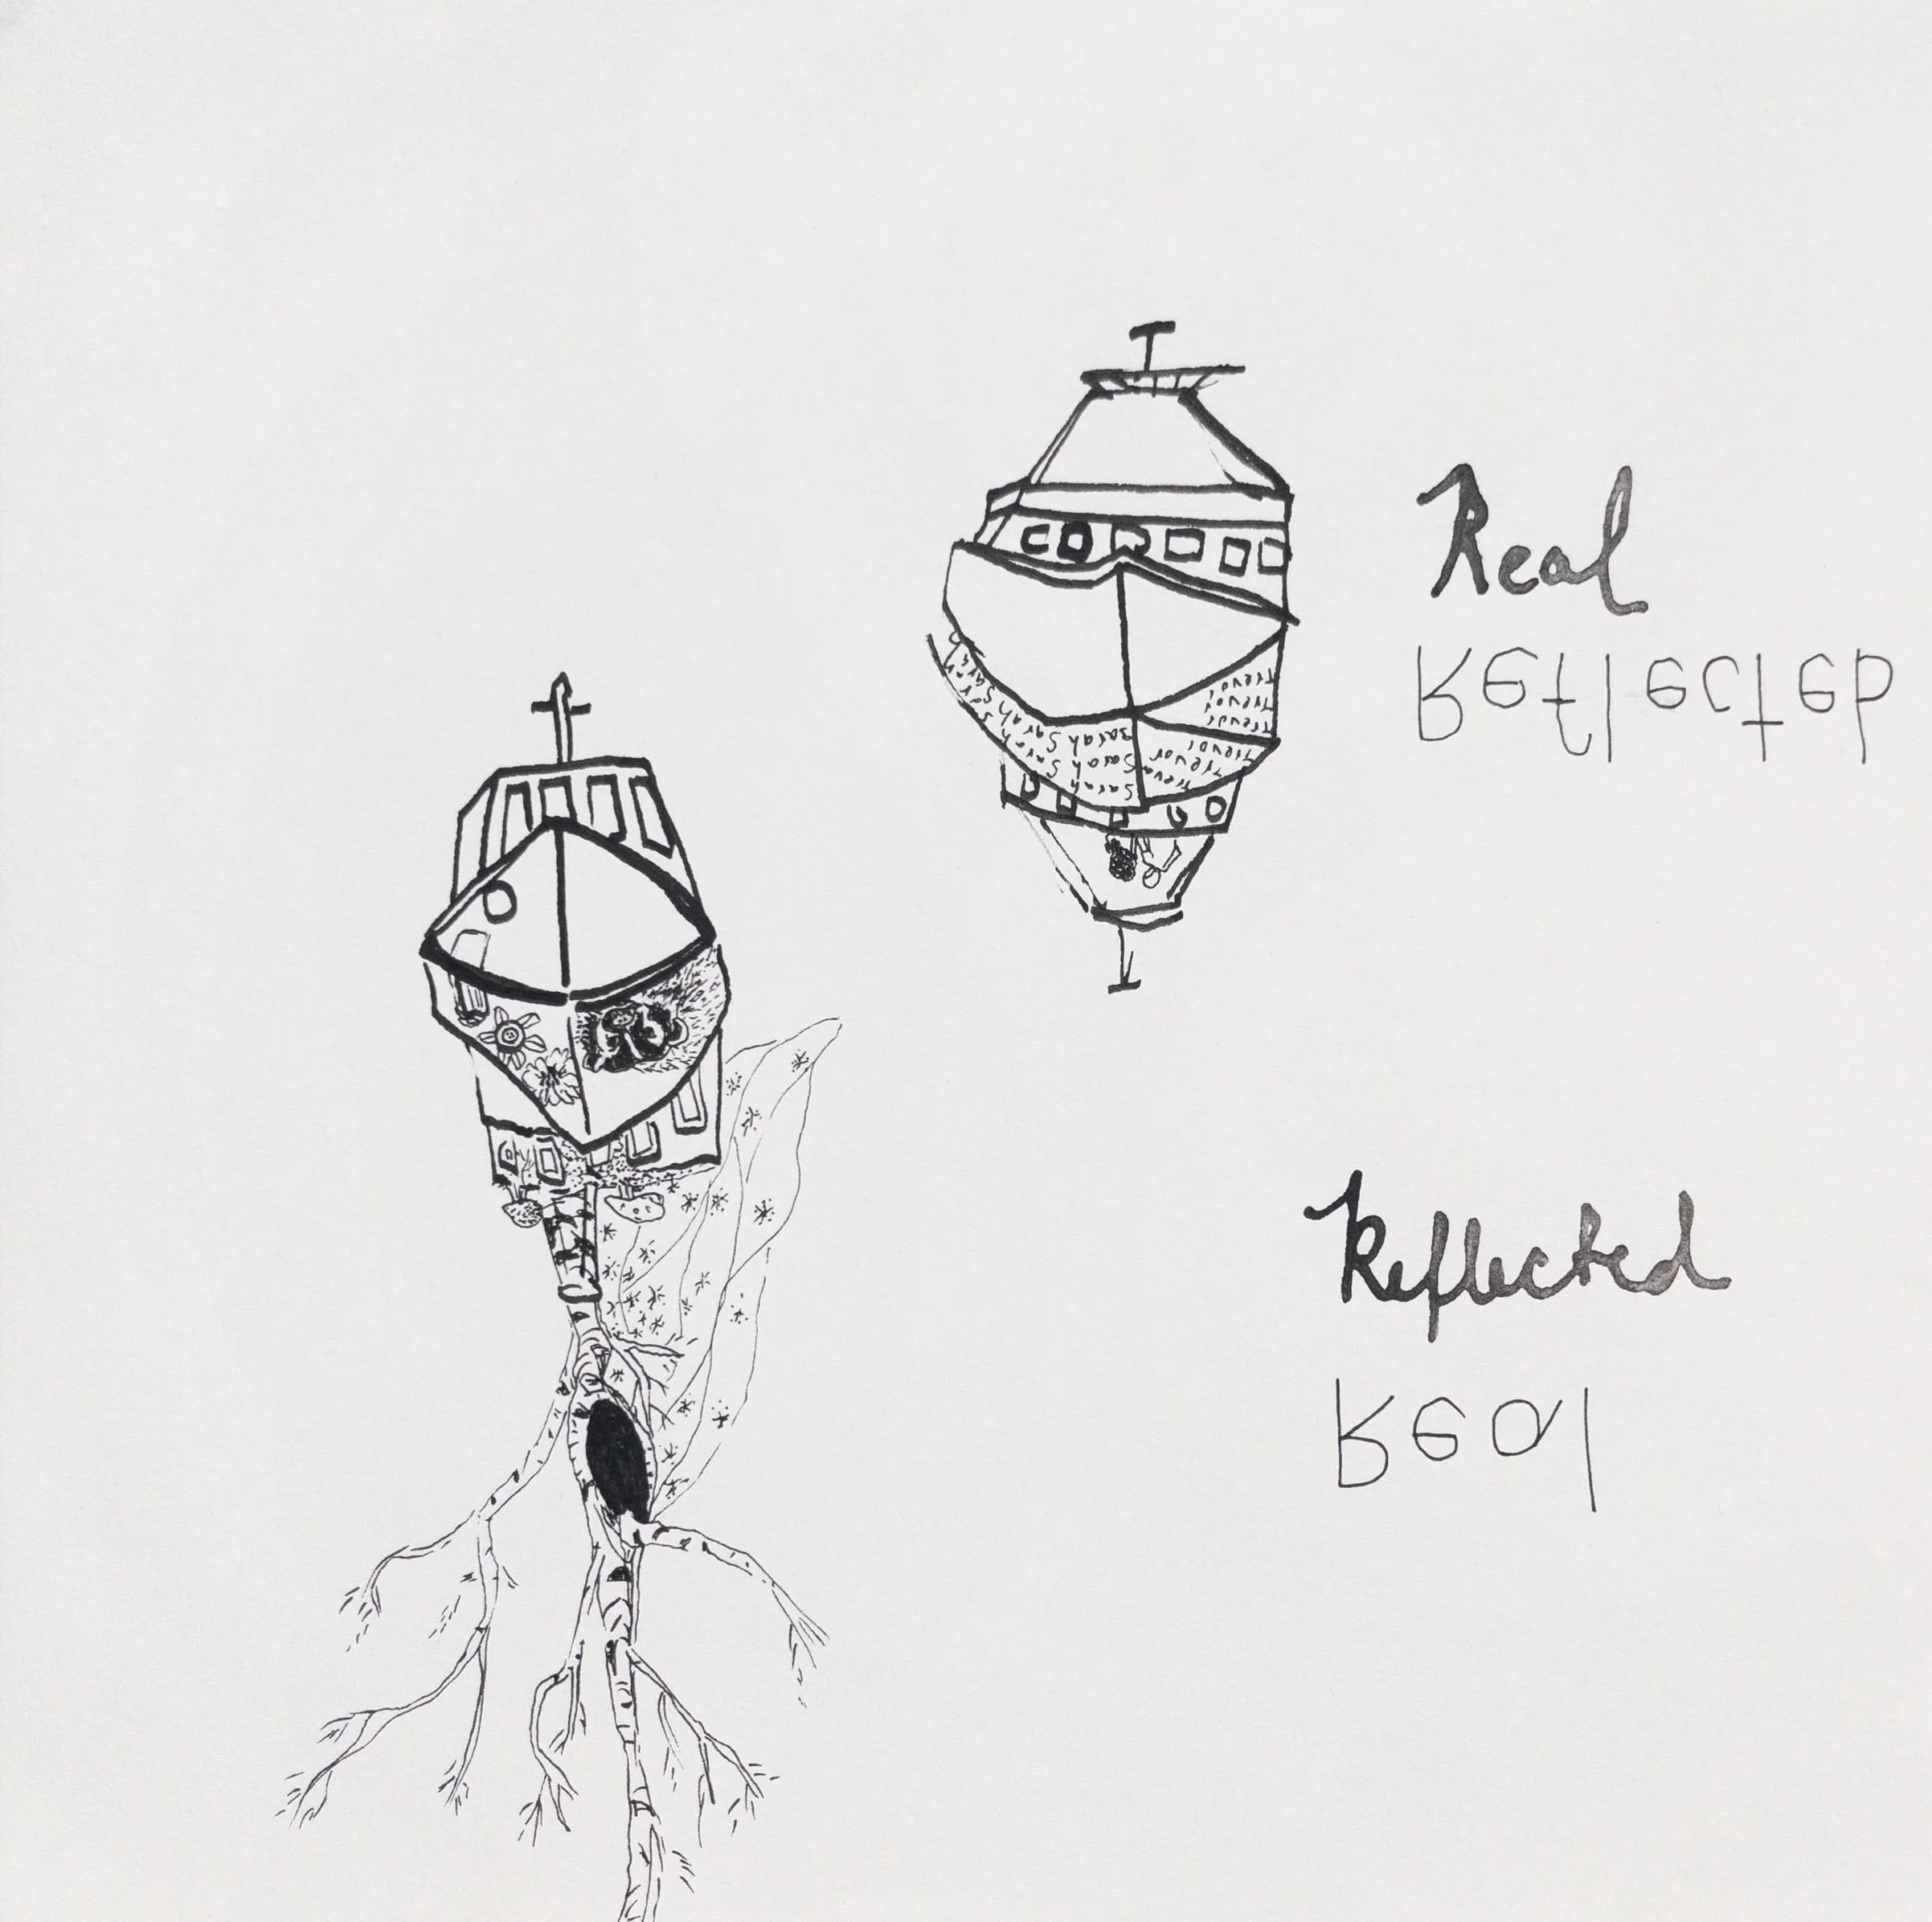 Real
Reflected
Trevor
Trevor
Trevor
Sarah Sarah Trevor
Sarah Sarah Trevor
Sarah Sarah Trevor
Reflected
Real